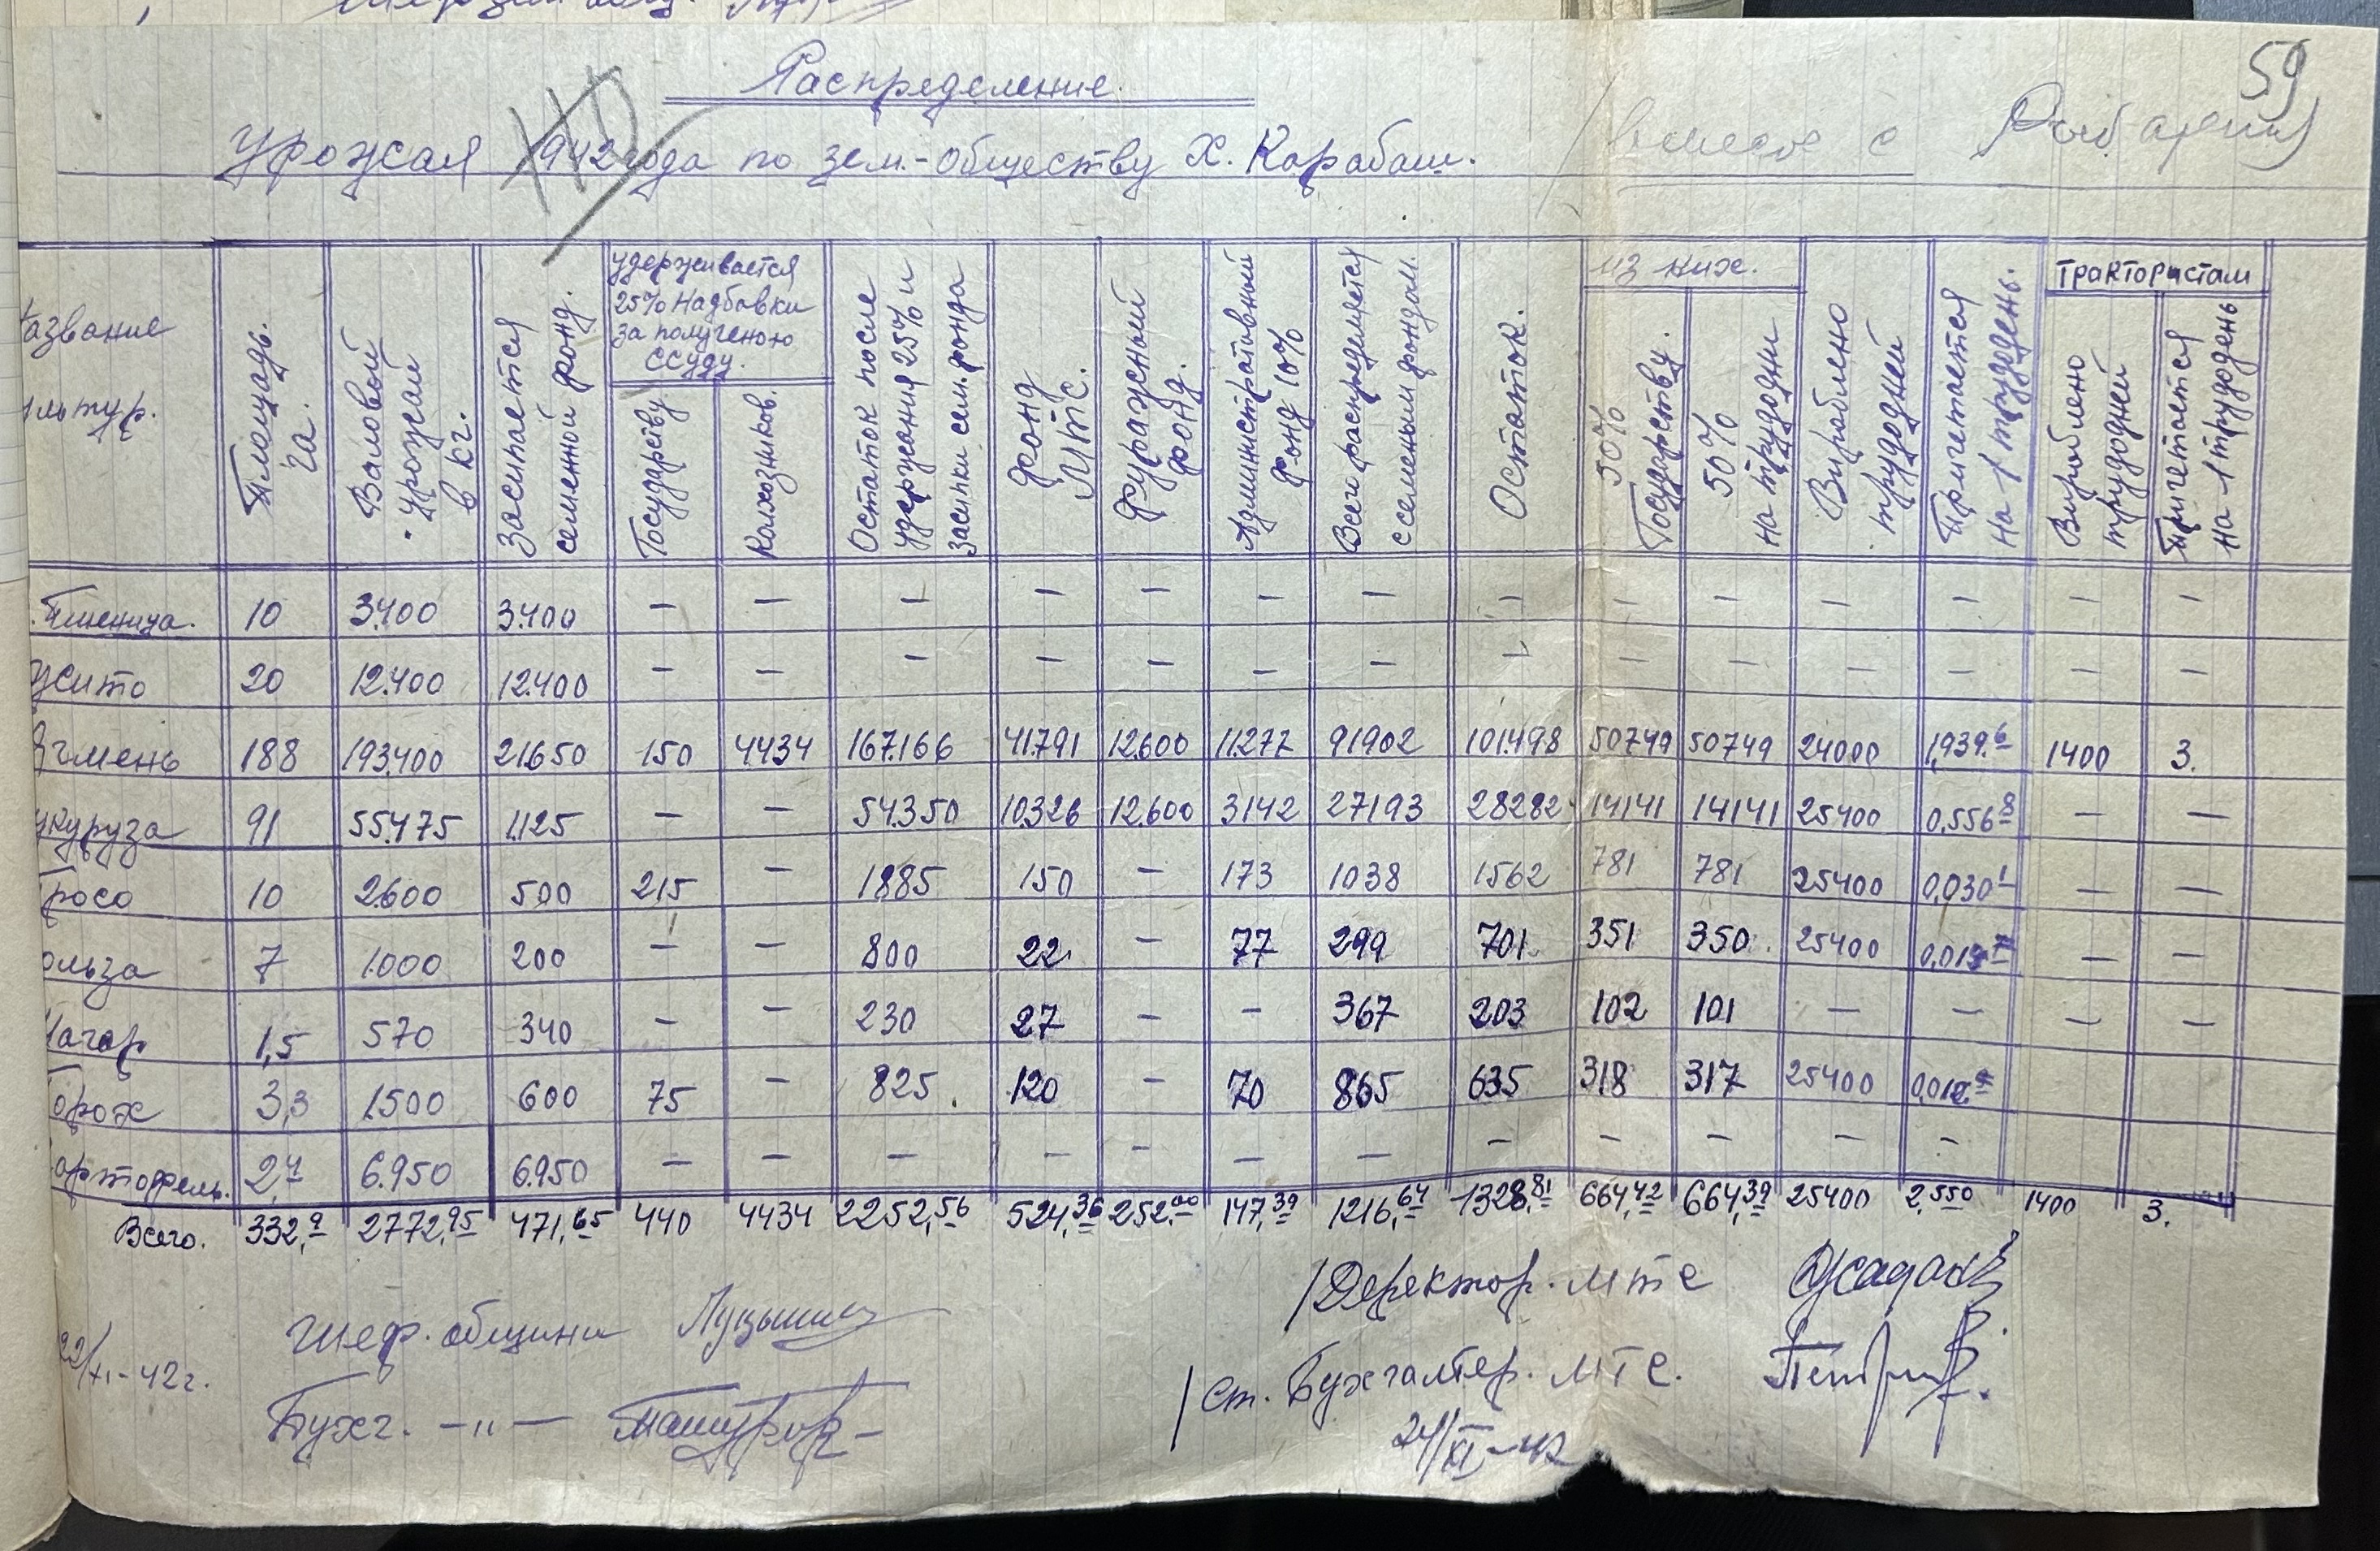 59
Распределение.
Урожая 1942 года по зем.-обществу Х. Карабаш.
Название культур.
Площадь. га.
Валовой урожай в кг.
Засипается семенной фонд.
удерживается 25% Надбавки за полученою ссуду.
Государству
Колхозников.
Остаток после удержания 25% и засипки сем. фонда
Фонд МТС.
Фуражный фонд.
Административный Фонд 10%
Всего распределяется с семеным фондом.
Остаток.
из них.
50% Государству.
50% на трудодни
Вироблено трудодней
Причетается на 1 трудодень.
Трактористам
Вироблено трудодней
Причетается на 1 трудодень
Пшеница. 10 3.400 3.400 — — — — — — — — — — — — — —
жито 20 12.400 12.400 — — — — — — — — — — — — — —
Ячмень 188 193.400 21.650 150 4434 167.166 41.791 12.600 11.277 91902 101.498 50749 50749 24000 1,939.6 1400 3.
укуруза 91 55.475 1.125 — — 54.350 10.326 12.600 3142 27193 28282 14141 14141 25400 0,556 8 — —
Просо 10 2.600 500 215 — 1885 150 — 173 1038 1562 781 781 25400 0,030 1 — —
ольза 7 1.000 200 — — 800 22 — 77 299 701 351 350. 25400 — —
1,5 570 340 — — 230 27 — — 367 203 102 101 — — — —
Горох 3,3 1.500 600 75 — 825. 120 — 70 865 635 318 317 25400
артофель. 2,4 6.950 6.950 — — — — — — — — — — — —
Всего. 332,9 2772,95 471,65 440 4434 2252,56 524,36 252,00 147,39 1216,64 1328,81 664,42 664,39 25400 2,550 1400 3.
/Деректор. МТС
Шеф. общини
22/XI-42г.
/Ст. Бухгалтер. МТС.
Бухг. —"—
24/XI-42